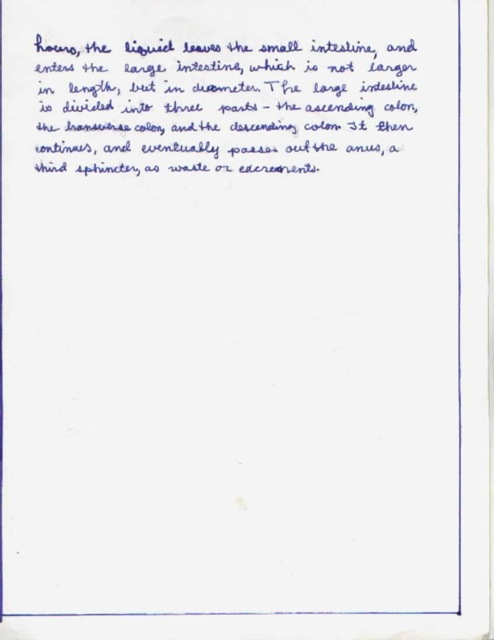 hours, the liquid leaves the small intestine, and
enters the large intestine, which is not larger
in length, but in diameter. The large intestine
is divided into three parts - the ascending colon,
the transverse colon, and the descending colon. It then
continues, and eventually passes out the anus, a
third sphincter, as waste or excrements.